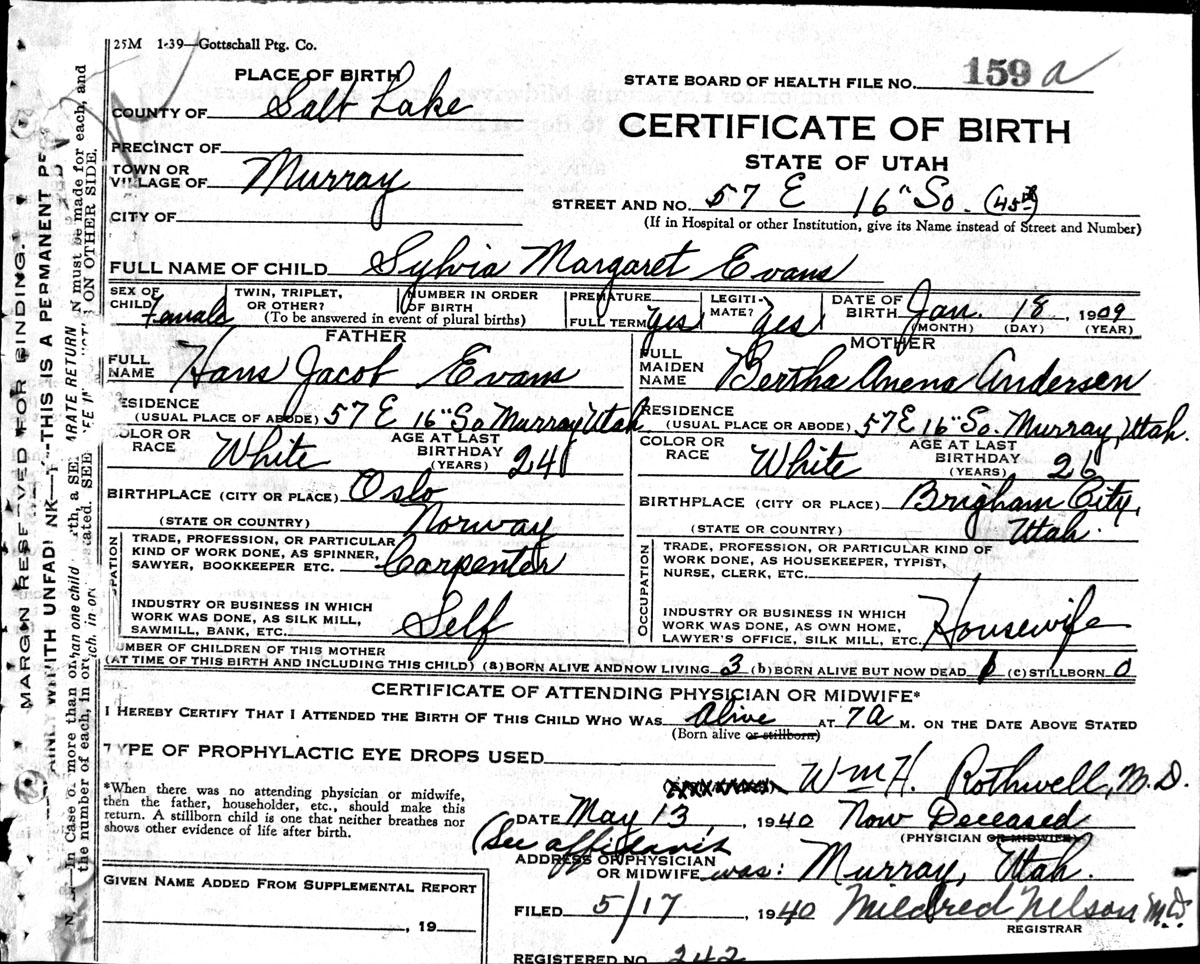 25M 1-39—Gottschall Ptg. Co.
PLACE OF BIRTH
STATE BOARD OF HEALTH FILE NO. 159 a
COUNTY OF Salt Lake
CERTIFICATE OF BIRTH
STATE OF UTAH
PRECINCT OF
TOWN OR VILLAGE OF Murray
STREET AND NO. 57 E 16" So. (45th)
CITY OF
(If in Hospital or other Institution, give its Name instead of Street and Number)
FULL NAME OF CHILD Sylvia Margaret Evans
SEX OF CHILD Female
TWIN, TRIPLET, OR OTHER?
NUMBER IN ORDER OF BIRTH
(To be answered in event of plural births)
PREMATURE
FULL TERM Yes
LEGITI-MATE? Yes
DATE OF BIRTH Jan. 18, 1909
(MONTH) (DAY) (YEAR)
FATHER
FULL NAME Hans Jacob Evans
RESIDENCE (USUAL PLACE OF ABODE) 57 E 16" So Murray Utah
COLOR OR RACE White
AGE AT LAST BIRTHDAY (YEARS) 24
BIRTHPLACE (CITY OR PLACE) Oslo
(STATE OR COUNTRY) Norway
TRADE, PROFESSION, OR PARTICULAR
KIND OF WORK DONE, AS SPINNER,
SAWYER, BOOKKEEPER ETC. Carpenter
INDUSTRY OR BUSINESS IN WHICH
WORK WAS DONE, AS SILK MILL,
SAWMILL, BANK, ETC. Self
MOTHER
FULL MAIDEN NAME Bertha Anena Andersen
RESIDENCE (USUAL PLACE OR ABODE) 57 E 16" So. Murray, Utah.
COLOR OR RACE White
AGE AT LAST BIRTHDAY (YEARS) 26
BIRTHPLACE (CITY OR PLACE) Brigham City,
(STATE OR COUNTRY) Utah.
OCCUPATION
TRADE, PROFESSION, OR PARTICULAR KIND OF
WORK DONE, AS HOUSEKEEPER, TYPIST,
NURSE, CLERK, ETC.
INDUSTRY OR BUSINESS IN WHICH
WORK WAS DONE, AS OWN HOME,
LAWYER'S OFFICE, SILK MILL, ETC. Housewife
UMBER OF CHILDREN OF THIS MOTHER
(AT TIME OF THIS BIRTH AND INCLUDING THIS CHILD) (a) BORN ALIVE AND NOW LIVING 3 (b) BORN ALIVE BUT NOW DEAD (c) STILLBORN 0
CERTIFICATE OF ATTENDING PHYSICIAN OR MIDWIFE*
I HEREBY CERTIFY THAT I ATTENDED THE BIRTH OF THIS CHILD WHO WAS Alive AT 7 A M. ON THE DATE ABOVE STATED
(Born alive or stillborn)
TYPE OF PROPHYLACTIC EYE DROPS USED
Wm H. Rothwell, M.D.
*When there was no attending physician or midwife,
then the father, householder, etc., should make this
return. A stillborn child is one that neither breathes nor
shows other evidence of life after birth.
DATE May 13, 1940 Now Deceased
(PHYSICIAN OR MIDWIFE)
(See affidavit
ADDRESS OF PHYSICIAN
OR MIDWIFE was: Murray, Utah.
GIVEN NAME ADDED FROM SUPPLEMENTAL REPORT
, 19
FILED 5/17 1940 Mildred Nelson M.D.
REGISTRAR
REGISTERED NO. 242
MARGIN RESERVED FOR BINDING.
WITH UNFADI NK—THIS IS A PERMANENT
In Case of more than one child
the number of each, in or
ARATE RETURN
must be made for each, and
ON OTHER SIDE.